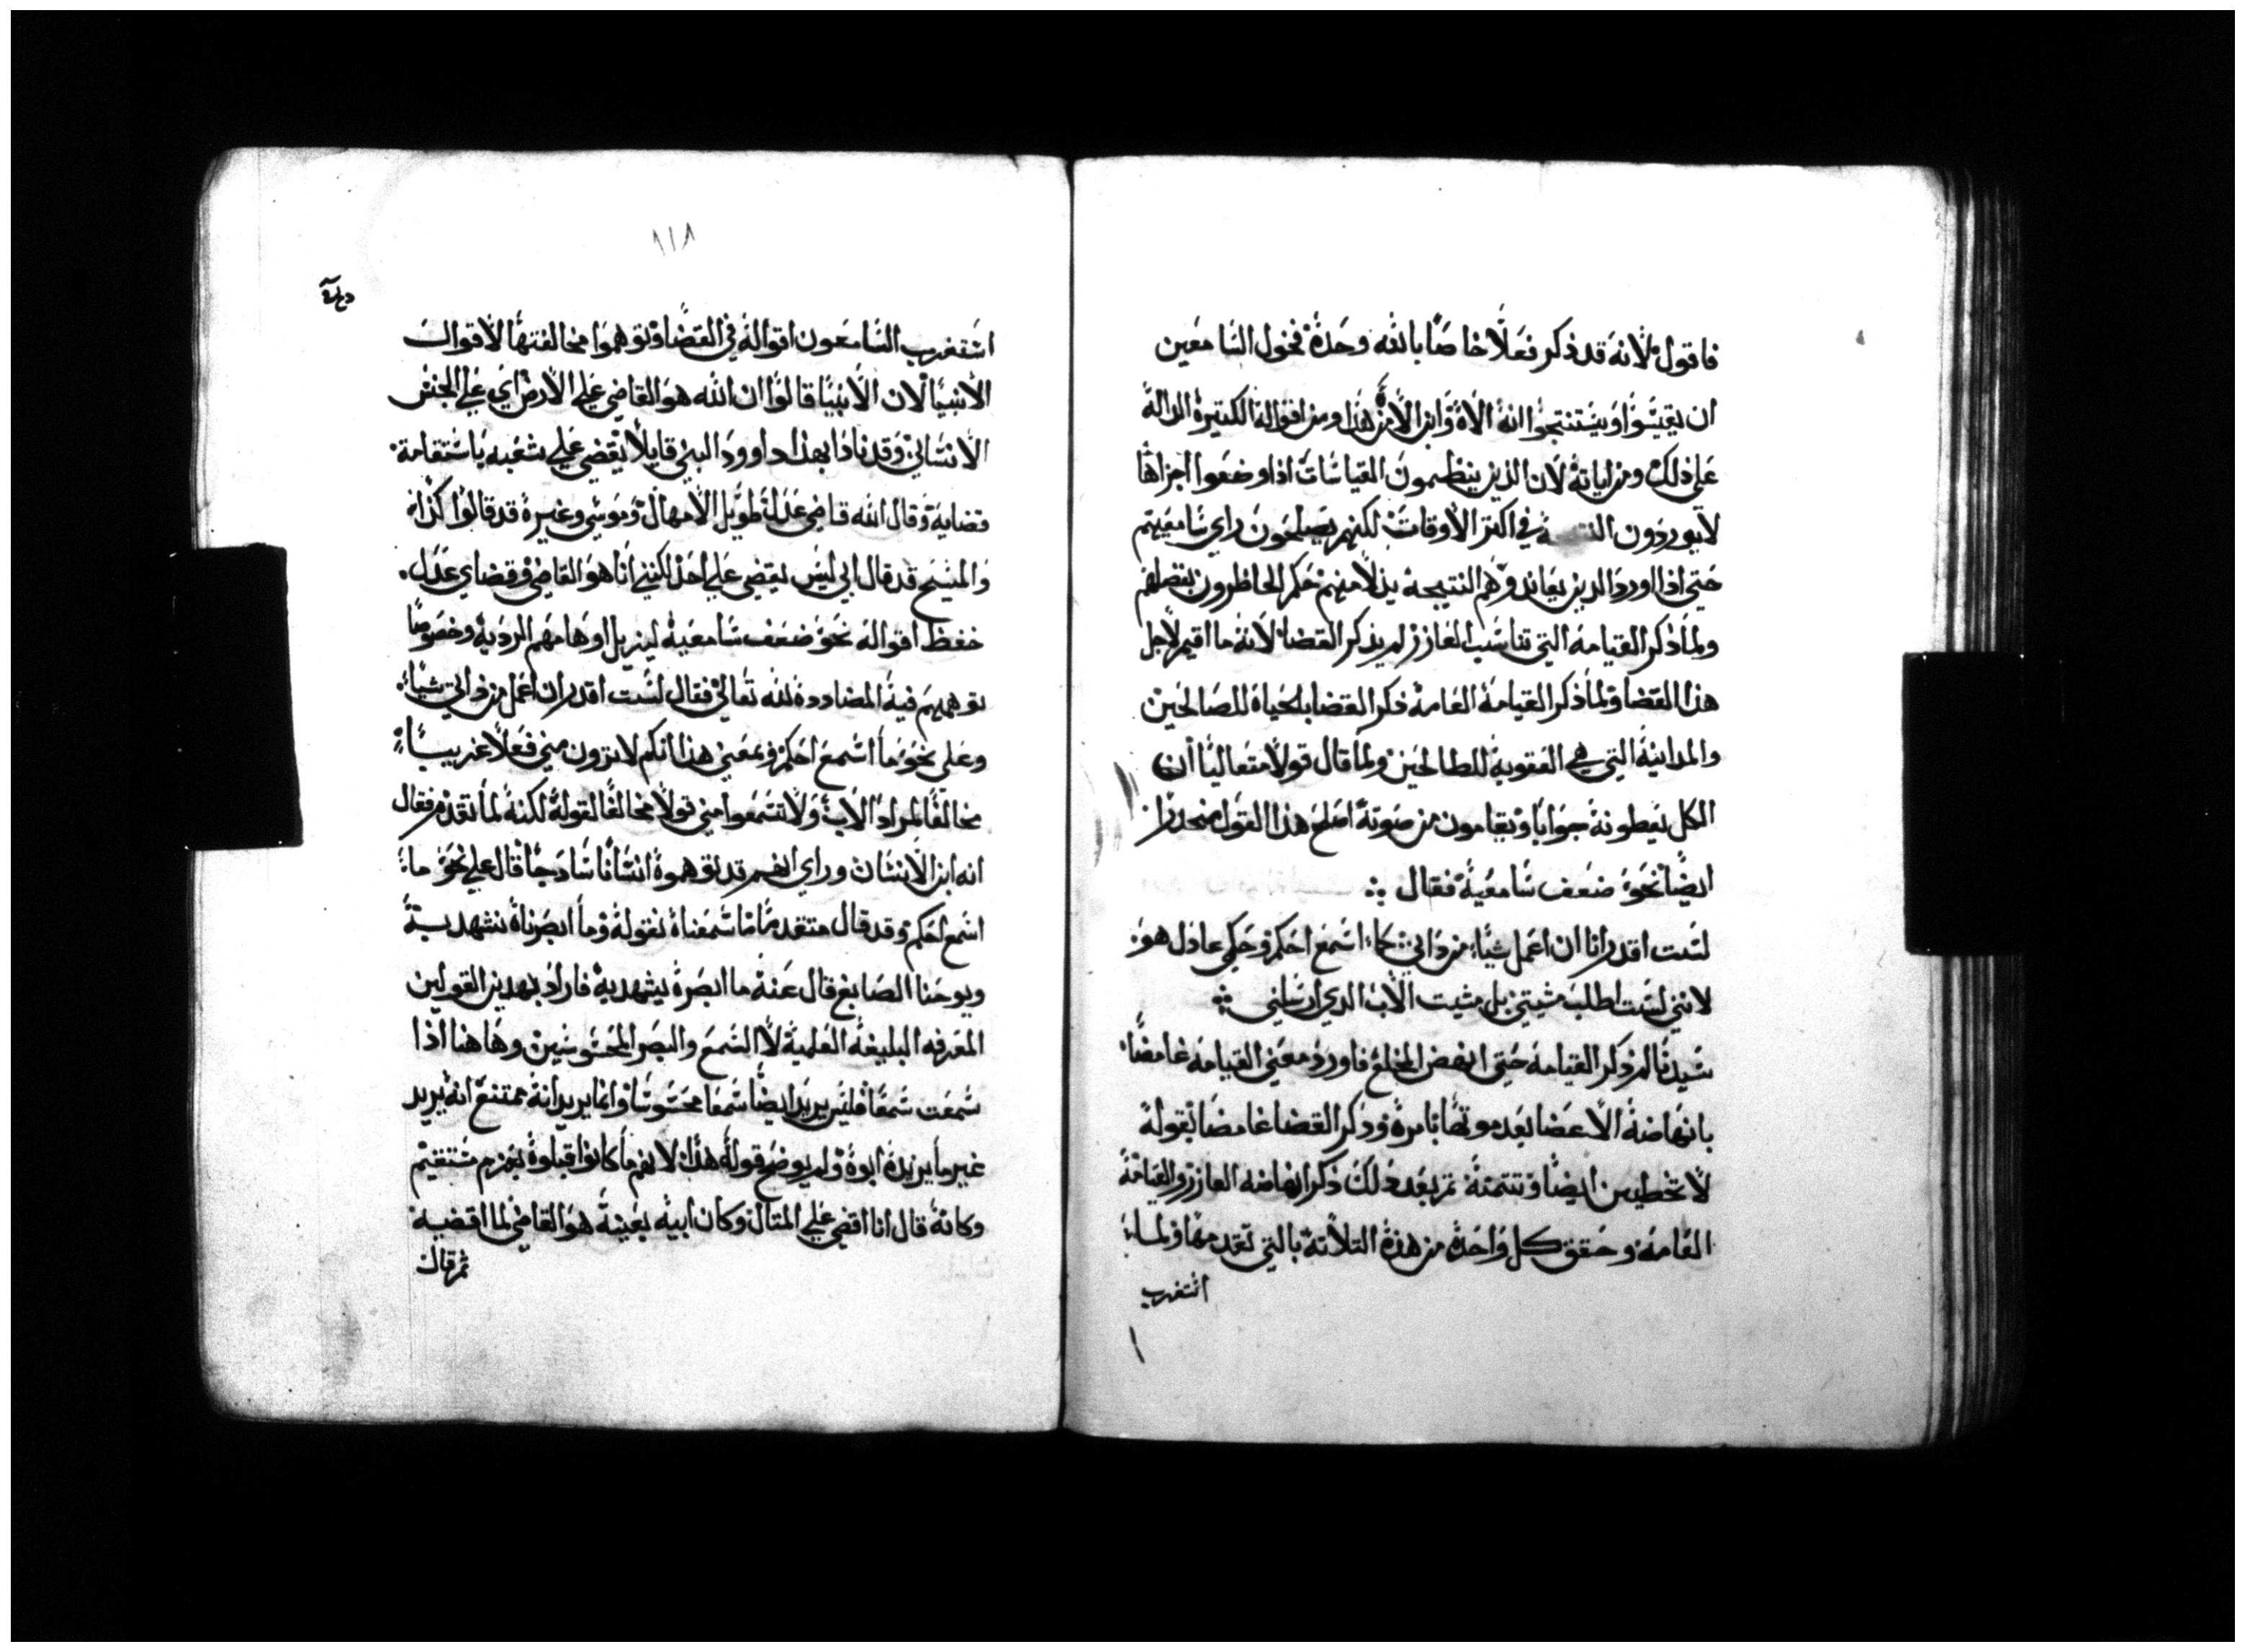 فاقول لانه قد ذكر فعلاً خاصاً بالله وحده فخول السامعين
ان يقيسوا ويستنتجوا انه الاه وابن الاه هذا ومن اقواله الكتيرة الداله
على ذلك ومن اياته لان الذين ينظمون القياسات اذا وضعوا اجزاها
لا يوردون في اكتر الاوقات لكنهم يصلحون راي سامعيهم
حتي اذا اورد الدين يعاندوهم النتيجه بدلاً منهم حكم الحاظرون بفضلهم
ولما ذكر القيامه التي تناسب العازر لم يذكر القضا لانه ما اقيم لاجل
هذا القضا ولما ذكر القيامة العامة ذكر القضا بالحياة للصالحين
والمداينة التي هي العقوبة للطالحين ولما قال قولاً متعالياً ان
الكل يعطونه جواباً ويقامون من صوته اصلح هذا القول منحدراً
ايضاً نحو ضعف سامعيه فقال
لست اقدر انا ان اعمل شياً من داتي كما اسمع احكم وحكمي عادل هو
لانني لست اطلب مشيتي بل مشيت الاب الدي ارسلني
سيدنا لم ذكر القيامة حتي انهض المخلع فاورد معني القيامه غامضاً
بانهاضة الاعضا بعد موتها بامره وذكر القضا غامضاً بقوله
لا تخطيين ايضاً وتتمته تم بعد ذلك ذكر انهاضه العازر والقيامة
العامة وحقق كل واحدة من هذه التلاتة بالتي تقدمها ولما
استغرب
١١٨
استغرب السامعون اقواله في القضا وتوهموا مخالفتها لاقوال
الانبيا لان الانبيا قالوا ان الله هو القاضي علي الارض اي علي الجنس
الانساني وقد نادا بهذا داوود النبي قايلاً يقضي علي شعبه باستقامة
قضاية وقال الله قاضي عدل طويل الامهال وموسي وغيره قد قالوا كذا
والمسيح قد قال ابي ليس يقضي علي احد لكنني انا هو القاضي وقضاي عدل
خفظ اقواله نحو ضعف سامعية ليزيل اوهامهم الردية وخصوصاً
توهمهم فية المضاددة لله تعالي فقال لست اقدر ان اعمل من داتي شياً
وعلي نحو ما اسمع احكم ومعني هذا انكم لا ترون مني فعلاً غريباً
مخالفاً لمراد الاب ولا تسمعوا مني قولاً مخالفاً لقوله لكنه لما تقدم فقال
انه ابن الانسان وراي انهم قد توهموة انساناً سادجاً قال علي نحو ما
اسمع احكم وقد قال متقدماً ما سمعناة نقولة وما ابصرناة نشهد به
ويوحنا الصابغ قال عنة ما ابصرة يشهد بة فاراد بهدين القولين
المعرفه البليغة العلمية لا السمع والبصر المحسوسين وهاهنا اذا
سمعت سمعاً فليس يريد ايضاً سمعاً محسوساً وانما يريد انة ممتنع انه يريد
غير ما يريدة ابوة ولم يوضح قولة هذا لانهم ما كانوا قبلوة بعزم مستقيم
وكانة قال انا اقضي علي المتال وكان ابيه بعينة هو القاضي لما اقضية
تم قال